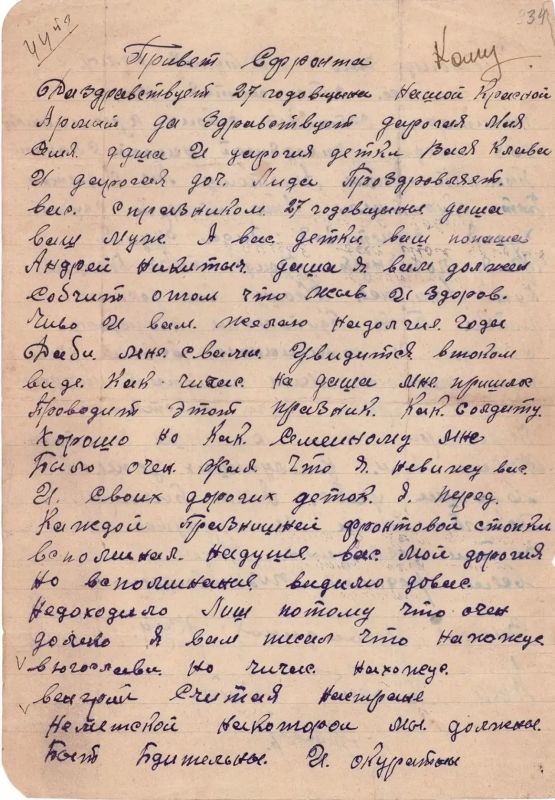 44 г?
234
Кому
Привет Сфронта
Даздравствует 27 годовщина нашой Красной
Армий да здравствует дорогая Моя
Сия душа И дорогия детки Вася Клава
И дорогая доч Лида Проздровляет
вас спразником 27 годовщины даша
ваш муж. А вас детки ваш попаша
Андрей Никитыч. даша Я вам должен
Собчит отом что жыв И здоров.
Чиво И вам желаю надолгия годы
Даби мне свами Увидится втоком
виде. Как чичас на даша мне пришлос
Проводит этот празник. Как солдату
Хорошо но Как Семейному мне
Било очен Жал Что Я невижу вас
И. Своих дорогих деток. Я перед.
Каждой Празнишней фронтовой стопки
вспоминал. надуше вас мой дорогия
но вспоминания видимо довас
недоходило Лиш потому что очен
долго Я вам писал что нахожус
вюгослави. но чичас нахожус.
венгрий Считая настране
неметской накоторой мы должны.
Быт Бдительны. И. окуратны